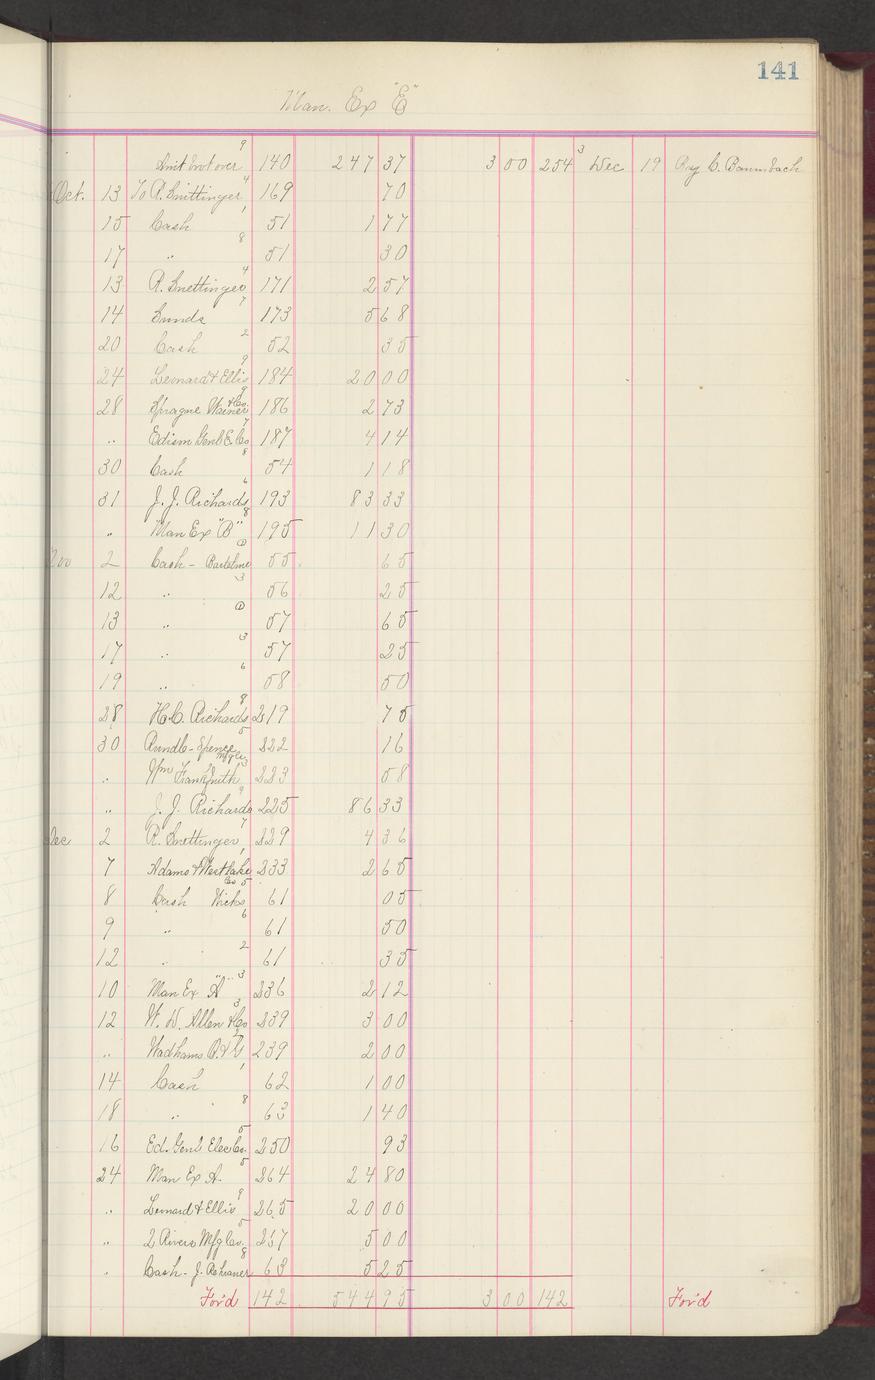 141
Man. Ex "E"
Amt brot over 9 140 247 37 3 00 254 3 Dec 19 Roy C. Baumbach
Oct. 13 To R. Snettinger 4 169 70
15 Cash 1 51 1 77
17 " 8 51 30
13 R. Snettinger 4 171 2 57
14 Sunds 7 173 5 68
20 Cash 2 52 35
24 Leonard & Ellis 9 184 20 00
28 Sprague Warner & Co. 9 186 2 73
" Edison Genl E Co 7 187 4 14
30 Cash 8 54 1 18
31 J. J. Richards 6 193 83 33
" Man Ex "B" 8 195 11 30
Nov 2 Cash - 1 55 65
12 " 3 56 25
13 " 1 57 65
17 " 3 57 25
19 " 6 58 50
28 H. C. Richards 8 219 75
30 Rundle-Spence Mfg Co 5 222 16
" Wm Frankfurth 3 223 58
" J. J. Richards 9 225 86 33
Dec 2 R. Snettinger 7 229 4 36
7 Adams & Westlake Co 1 233 2 65
8 Cash Wicks 5 61 05
9 " 6 61 50
12 " 2 61 35
10 Man Ex "A" 3 236 2 12
12 W. D. Allen & Co 3 239 3 00
" Wadhams O. & G 2 239 2 00
14 Cash 1 62 1 00
18 " 8 63 1 40
16 Ed. Genl Elec Co. 5 250 93
24 Man Ex A. 5 264 24 80
" Leonard & Ellis 9 265 20 00
" 2 Rivers Mfg Co. 5 267 5 00
" Cash - J. 8 63 5 25
For'd 142 544 95 3 00 142 For'd